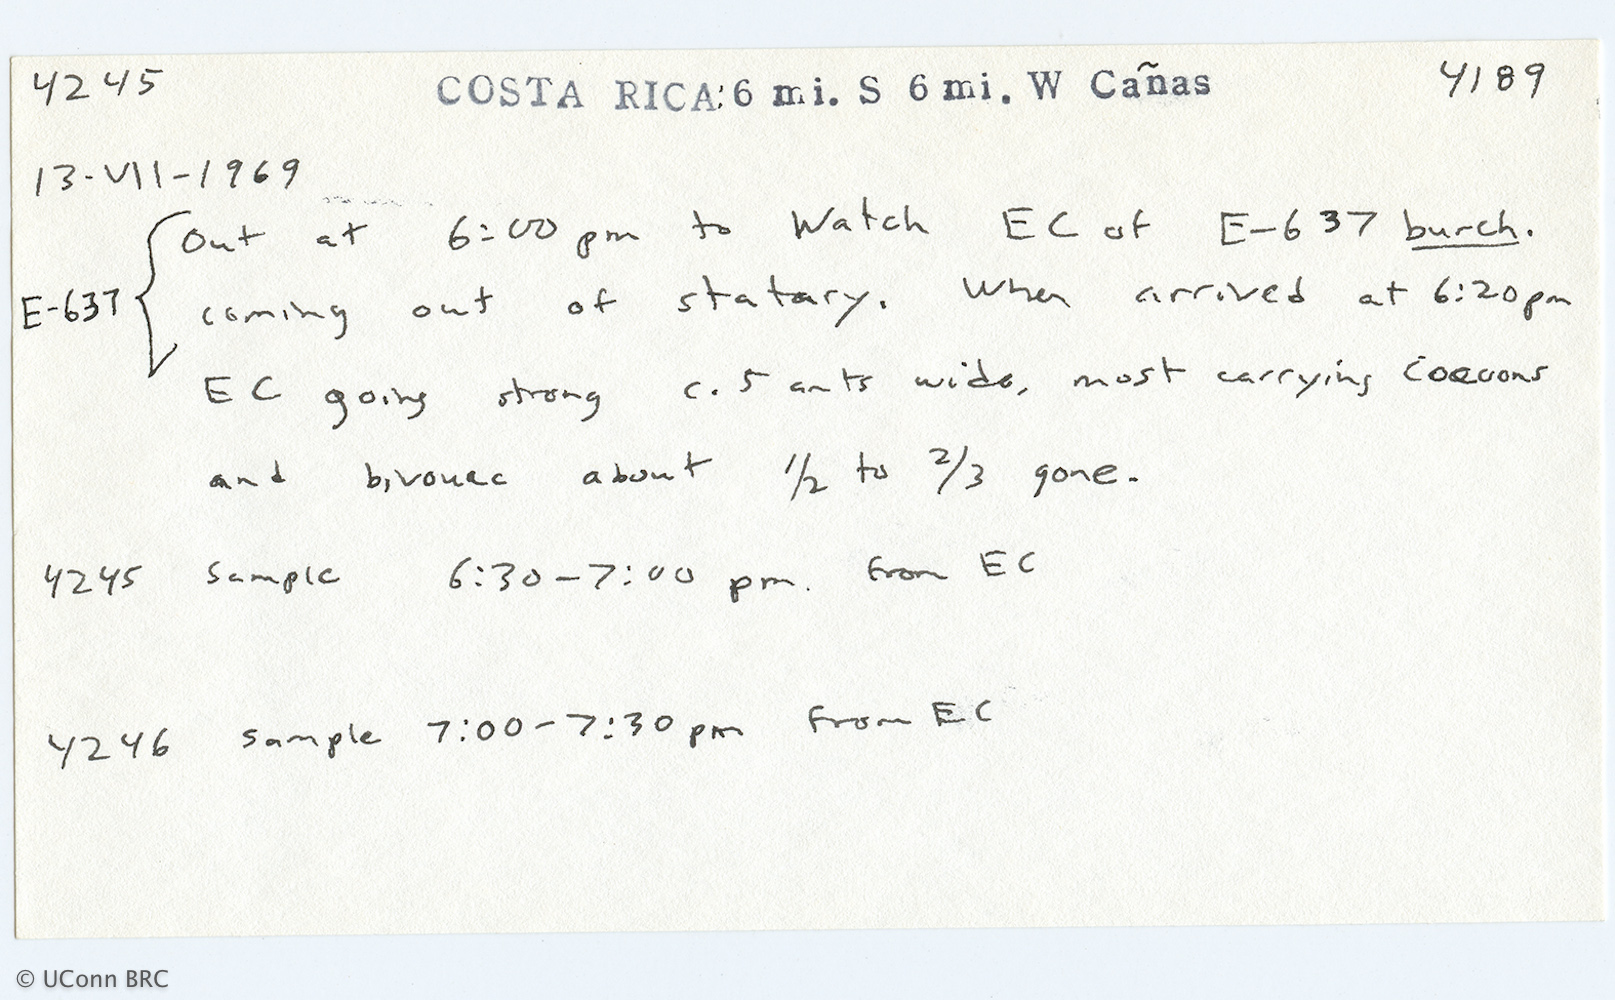 4245 COSTA RICA: 6 mi. S 6 mi. W Cañas 4189
13-VII-1969
Out at 6:00 pm to Watch EC of E-637 burch.
E-637 coming out of statary. When arrived at 6:20pm
EC going strong c. 5 ants wide, most carrying cocoons
and bivouac about 1/2 to 2/3 gone.
4245 Sample 6:30-7:00 pm. from EC
4246 Sample 7:00-7:30 pm from EC
© UConn BRC